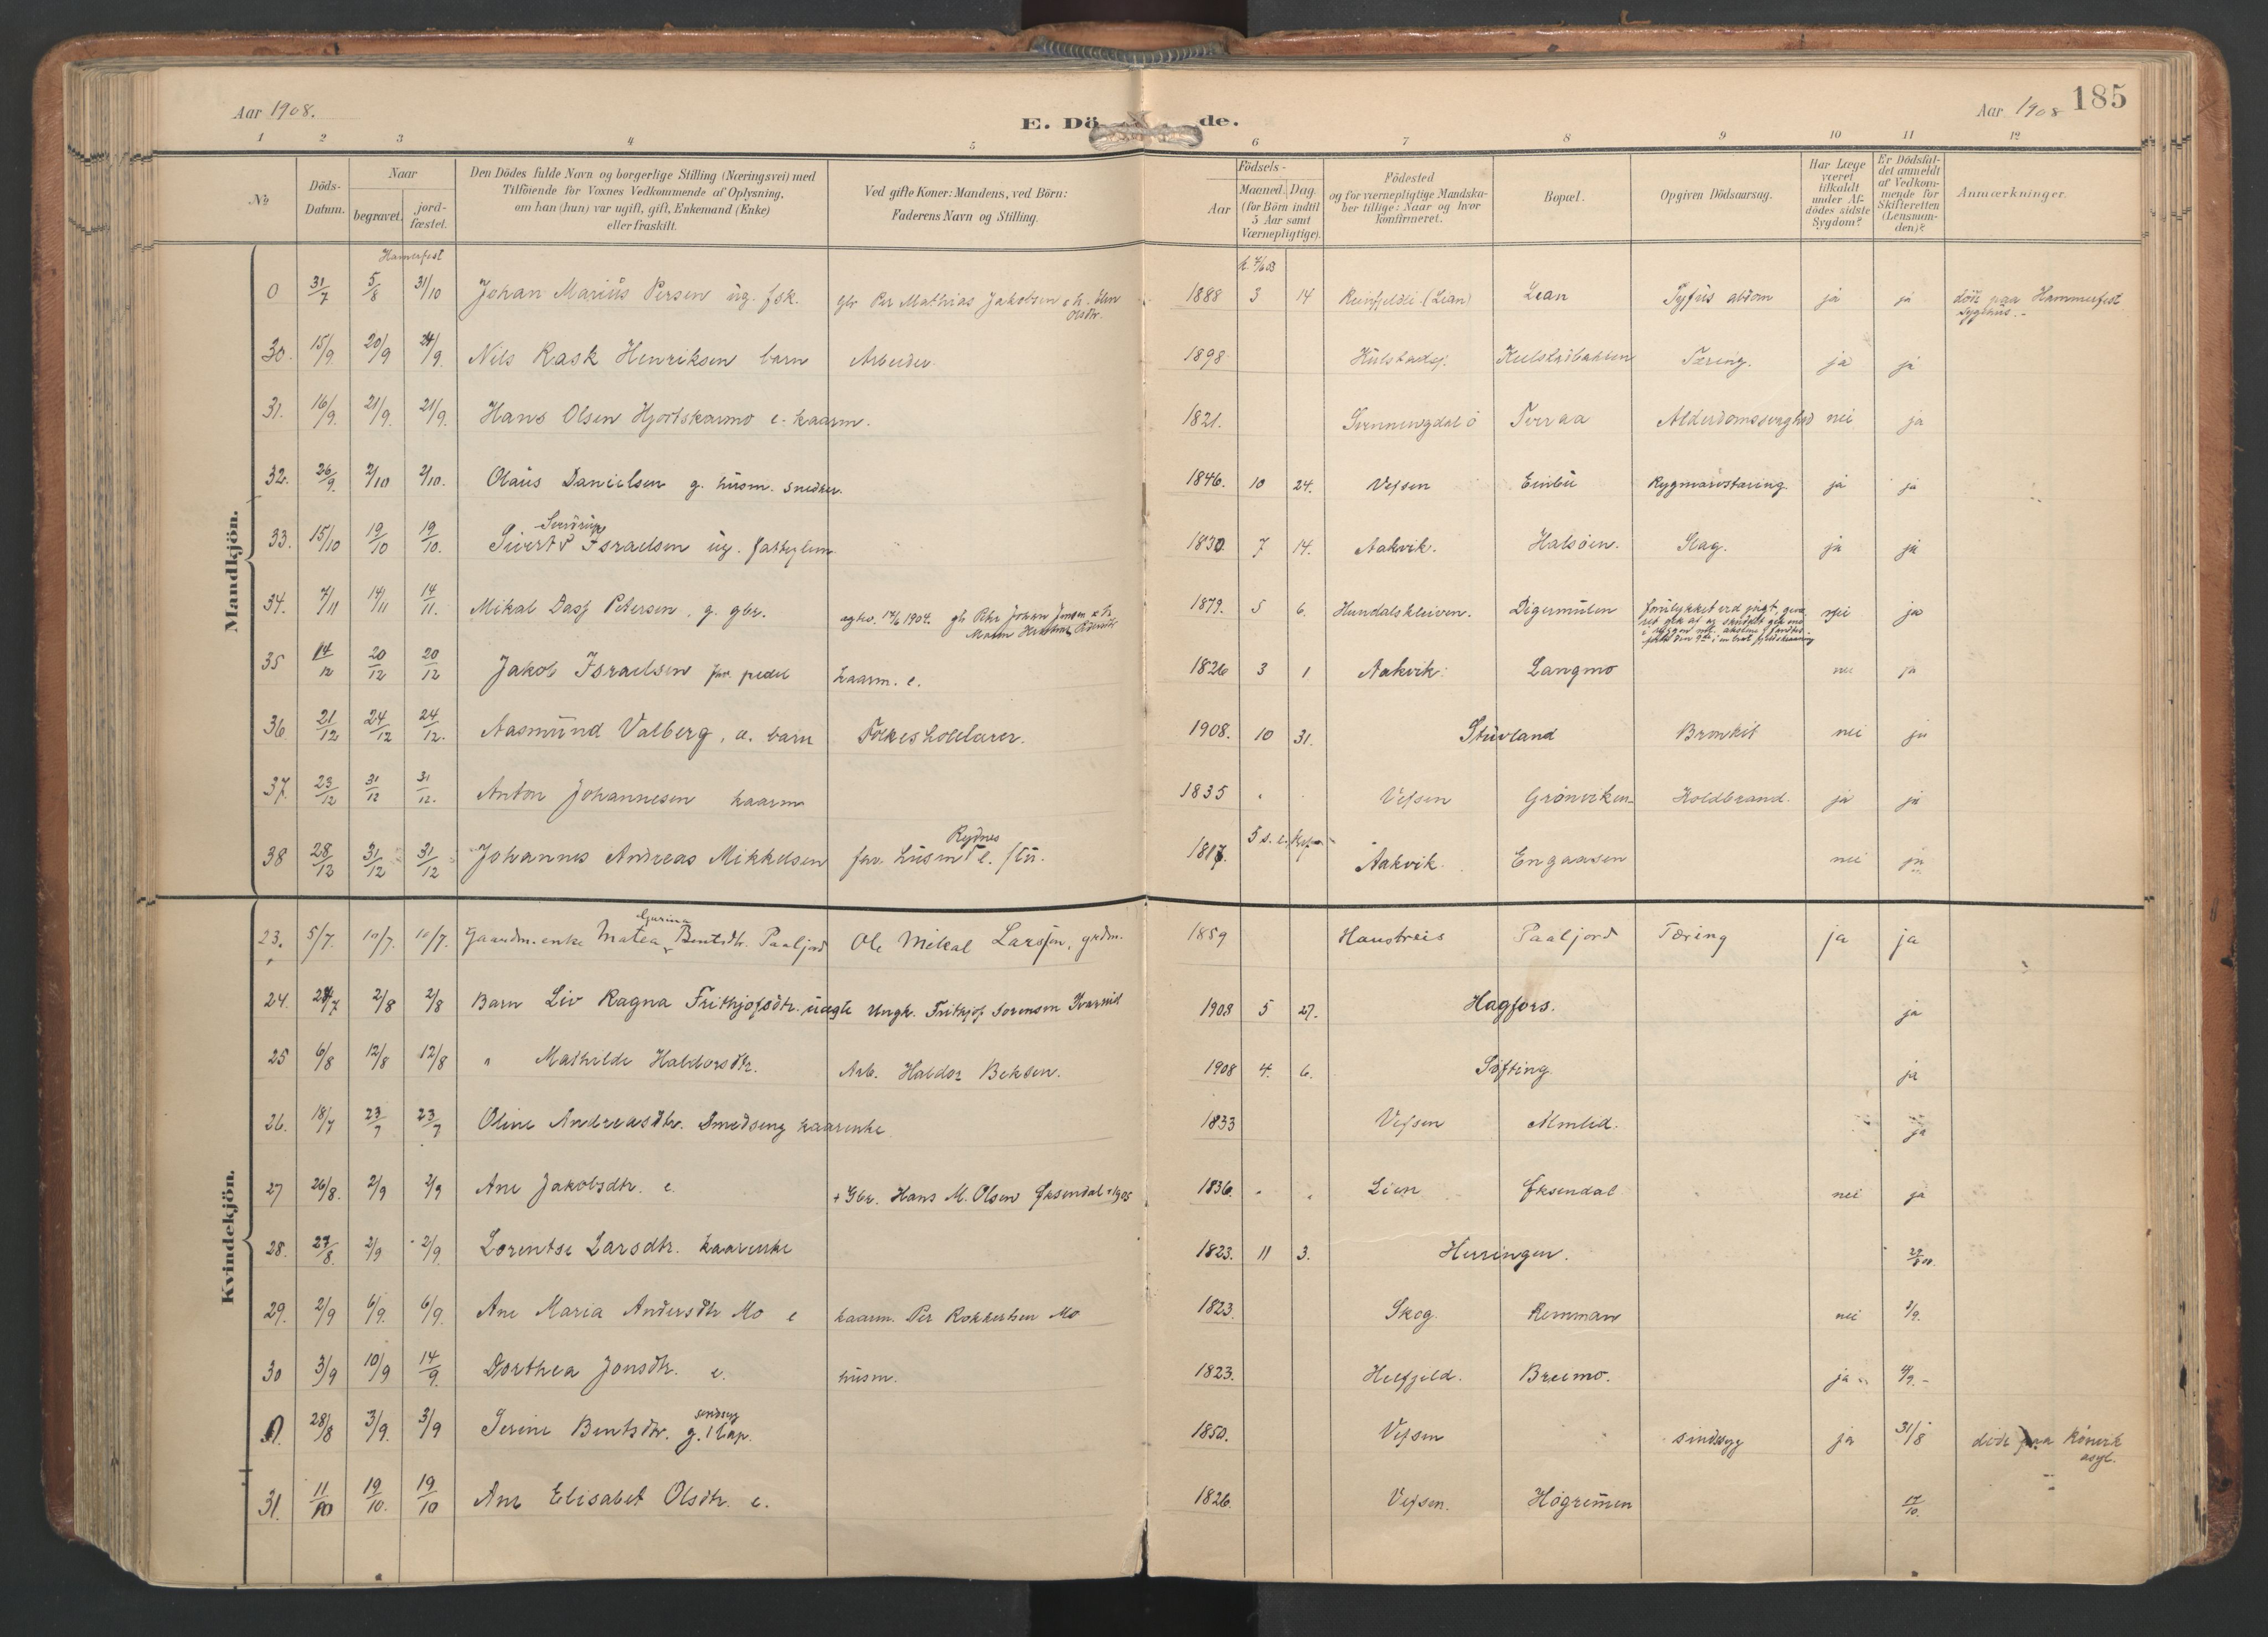 Aar 1908.
E. Dö de.
Aar 1908 185
1 2 3 4 5 6 7 8 9 10 11 12
No
Döds-Datum.
Naar
begravet.
jord-fæstet.
Den Dödes fulde Navn og borgerlige Stilling (Næringsvei) med
Tilföiende for Voxnes Vedkommende af Oplysning,
om han (hun) var ugift, gift, Enkemand (Enke)
eller fraskilt.
Ved gifte Koner: Mandens, ved Börn:
Faderens Navn og Stilling.
Födsels-
Aar
Maaned. Dag.
(for Börn indtil
5 Aar samt
Værnepligtige).
Födested
og for værnepligtige Mandska-
ber tillige: Naar og hvor
konfirmeret.
Bopæl.
Opgiven Dödsaarsag.
Har Læge
været
tilkaldt
under Af-
dödes sidste
Sygdom?
Er Dödsfal-
det anmeldt
af Vedkom-
mende for
Skifteretten
(Lensman-
den)?
Anmærkninger.
Mandkjön.
Hamerfest
0 31/7 5/8 31/10 Johan Marius Persen ug. fsk. gbr Per Mathias Jakobsen Olsdtr. 1888 3 14 (Lian) Lean Tyfus abdom ja ja död paa Hammerfest Sygehus.
30. 15/9 20/9 24/9. Nils Rask Henriksen barn Arbeider. 1898 Kulstadsj. Kulstadbakken Tæring. ja ja
31. 16/9. 21/9. 21/9. Hans Olsen Hjortskarmo e. kaarm. 1821. Svenningdal ö Tveraa Alderdomssvaghed nei ja
32. 26/9. 2/10 2/10. Olaus Danielsen g. husm. snedker. 1846. 10 24. Vefsen Einbu Rygmarvstæring ja ja
33. 15/10 19/10 19/10. Sivert Israelsen ug. fattiglem 1830 7 14. Aakvik. Halsöen. Slag. ja ja
34. 7/11 14/11 14/11. Mikal Dasf Petersen, g. gbr. 1879. 5 6. Hundalskleiven. Digermulen nei ja
35 14/12 20/12 20/12 Jakob Israelsen fhv. pedel kaarm. e. 1826 3 1 Aakvik. Langmo nei ja
36. 21/12 24/12 24/12. Aasmund Valberg, æ. barn Folkeskolelærer. 1908. 10 31. Stuvland Bronkit nei ja
37. 23/12 31/12 31/12. Anton Johannesen kaarm 1835 Vefsen Grönerken Koldbrand. ja ja
38 28/12 31/12 31/12 Johannes Andreas Mikkelsen fhv. husm Rydnes e. 1817. Aakvik. Engaasen nei ja
Kvindekjön.
23. 5/7. 10/7. 10/7. Gaardm. enke Matea Gurina Bentsdtr. Paaljord Ole Mikal Larssen, grdm. 1859 Haustreis Paaljord Tæring ja ja
24. 24/7 2/8 2/8 Barn Liv Ragna Frithjofsdtr. uægte Ungk. Frithjof Sorensen Kvarmid 1908 5 27. Hagfors. ja
25 6/8 12/8 12/8 " Mathilde Haldorsdtr. Arb. Haldor Beksen. 1908 4. 6. Söfting. ja
26. 18/7 23/7 23/7 Oline Andreasdtr. Smedseng kaarenke 1833 Vefsen Almlid. ja
27 26/8. 2/9 2/9 Ane Jakobsdtr. e. + Gbr. Hans M. Olsen Eksendal +1905 1836. Lien Eksendal nei ja
28. 27/8. 2/9 2/9. Lorentse Larsdtr. kaarenke 1823. 11 3. Herringen.
29. 2/9 6/9. 6/9. Ane Maria Andersdtr Mo e kaarm. Per Rokkertsen Mo 1823. Skog. Remman nei 2/9.
30 3/9 10/9 14/9. Dorthea Jonsdtr. e. husm. 1823. Helfjeld. Breimo. ja 4/9.
28/8 3/9. 3/9 Serine Bentsdtr. g. sindssyg Lap. 1850. Vefsen sindssyg ja 31/8 döde paa Rönvik asyl.
31. 11/10 19/10. 19/10 Ane Elisabet Olsdtr. e. 1826. Vefsen. Högremen 17/10.